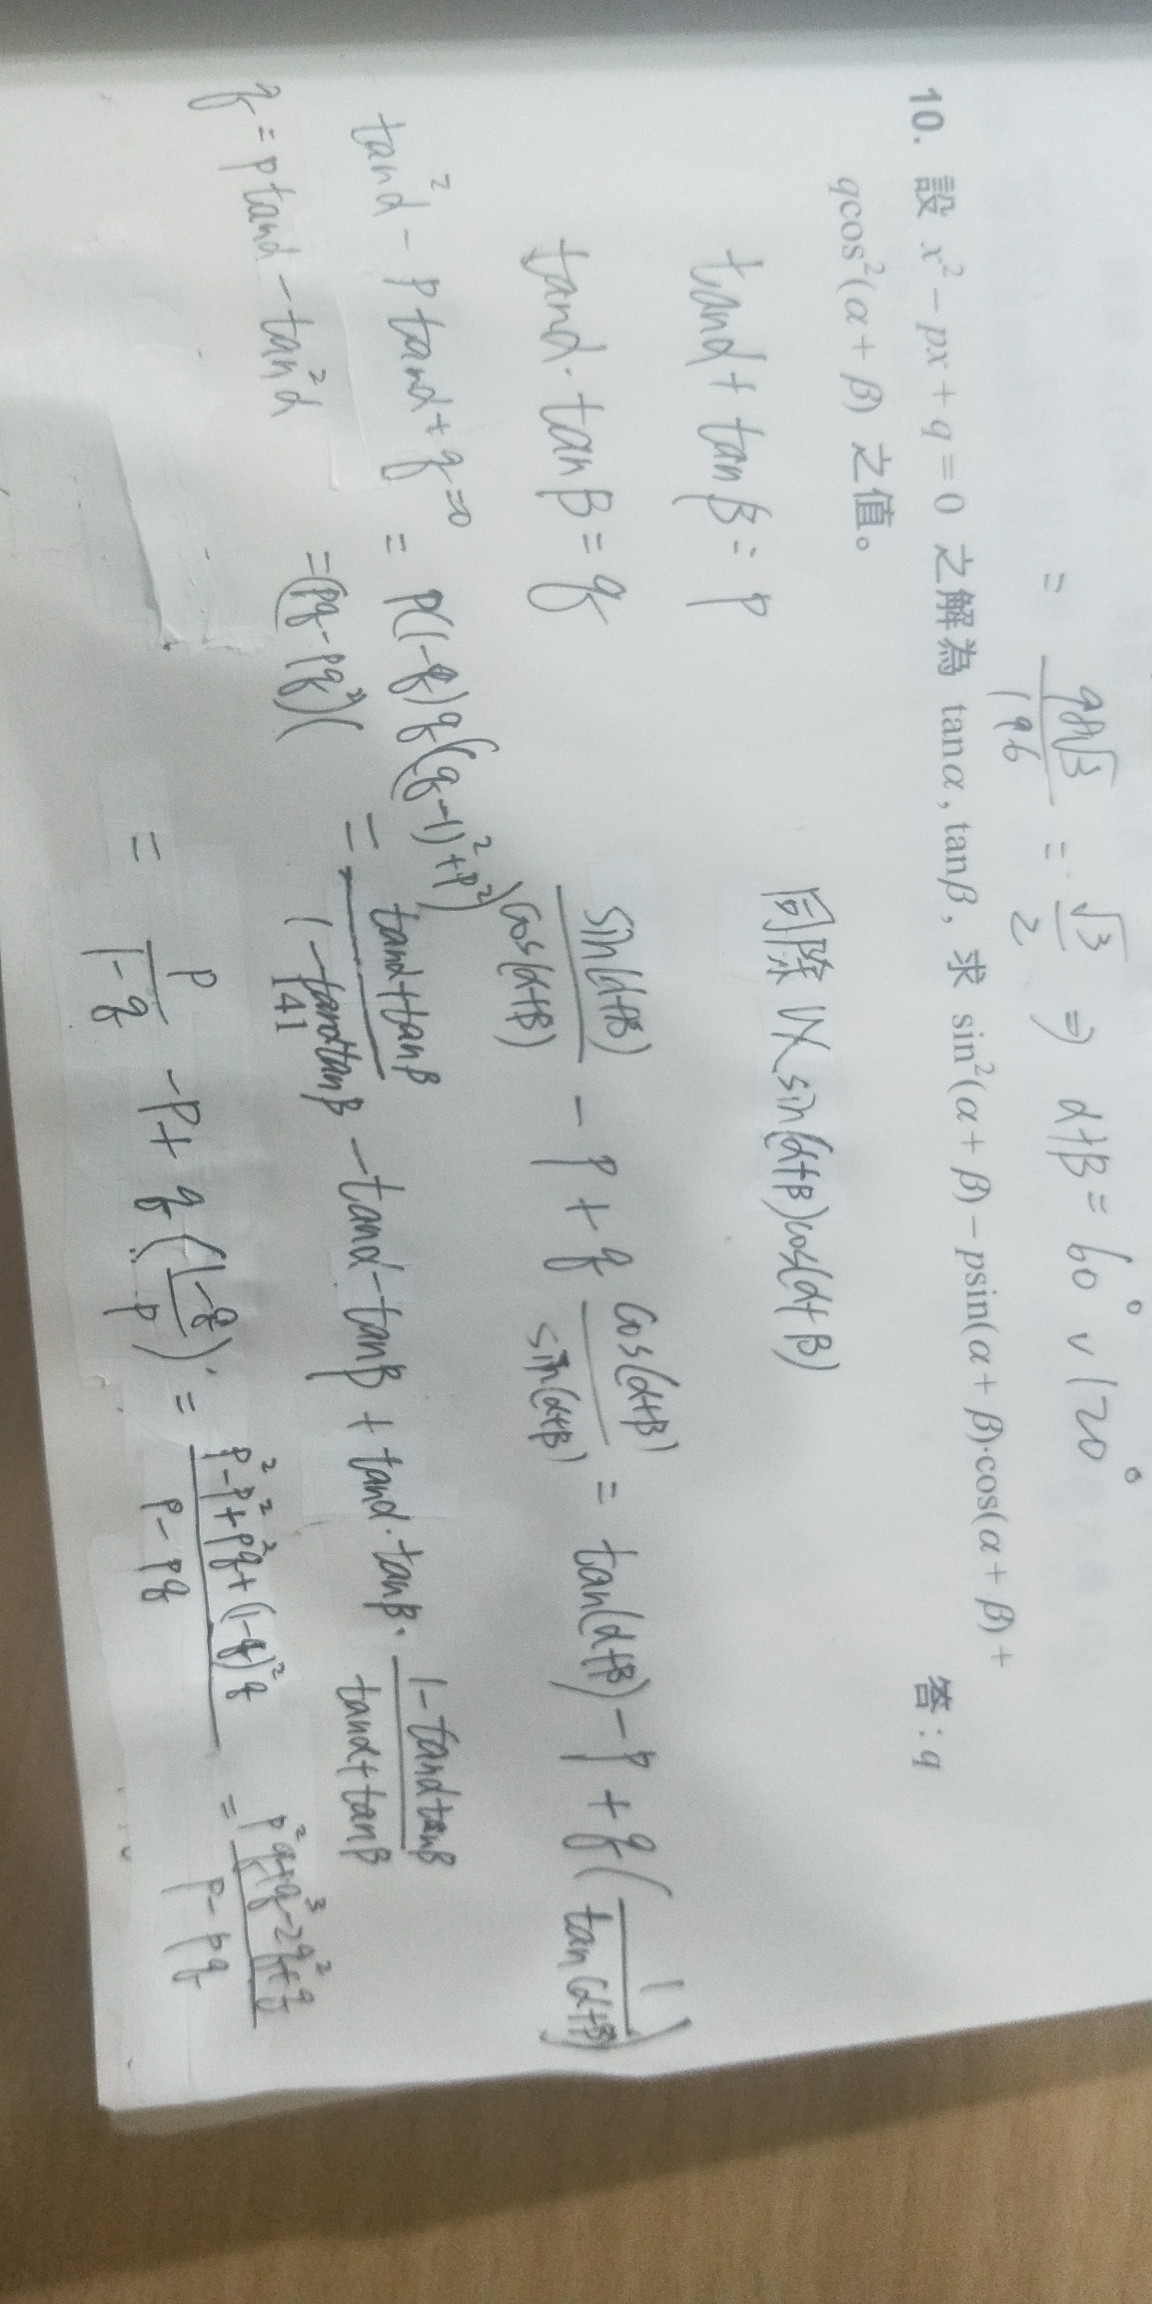 = 98√3/196 = √3/2 ⇒ α+β = 60° ∨ 120°
10. 設 x² − px + q = 0 之解為 tanα, tanβ, 求 sin²(α + β) − psin(α + β)·cos(α + β) +
qcos²(α + β) 之值。
答 : q
tanα + tanβ = p
同除以 sin(α+β)cos(α+β)
tanα · tanβ = q
sin(α+β)/cos(α+β) − p + q cos(α+β)/sin(α+β) = tan(α+β) − p + q(1/tan(α+β))
tan²α − p tanα + q = 0
= p(1−q)q((q−1)²+p²)
= (tanα+tanβ)/(1−tanαtanβ) − tanα − tanβ + tanα·tanβ · (1−tanαtanβ)/(tanα+tanβ)
q = p tanα − tan²α
= (pq − pq²)(
141
= p/(1−q) − p + q((1−q)/p) = (p²−p²+p²q+(1−q)²q)/(p−pq) = (p²q+q³−2q²+q)/(p−pq)